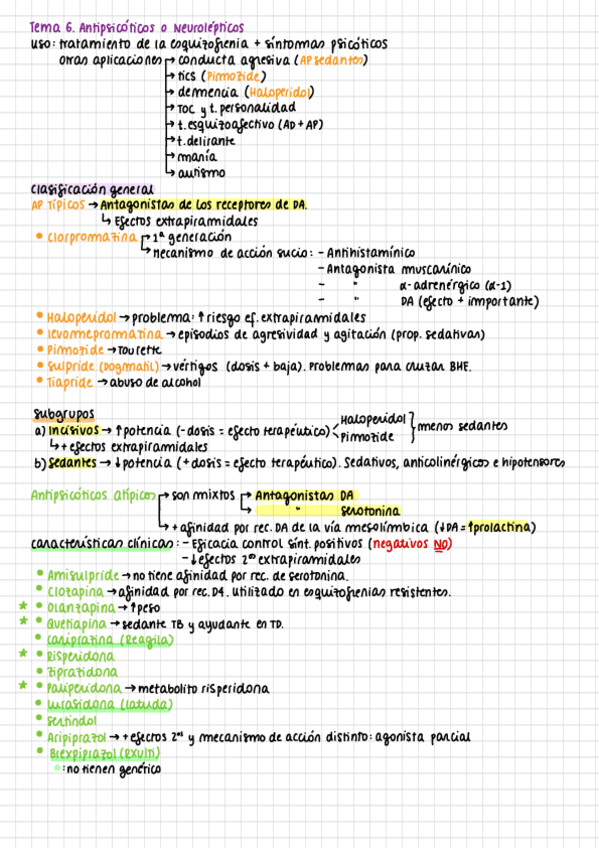 Tema 6. Antipsicóticos o Neurolépticos
uso: tratamiento de la esquizofrenia + síntomas psicóticos
otras aplicaciones → conducta agresiva (AP sedantes)
→ tics (Pimozide)
→ demencia (Haloperidol)
→ TOC y t. personalidad
→ t. esquizoafectivo (AD + AP)
→ t. delirante
→ manía
→ autismo
Clasificación general
AP Típicos → Antagonistas de los receptores de DA.
↳ Efectos extrapiramidales
• Clorpromazina → 1ª generación
→ Mecanismo de acción sucio: - Antihistamínico
- Antagonista muscarínico
- " α-adrenérgico (α-1)
- " DA (efecto + importante)
• Haloperidol → problema: ↑ riesgo ef. extrapiramidales
• Levomepromazina → episodios de agresividad y agitación (prop. sedativas)
• Pimozide → Tourette
• Sulpride (Dogmatil) → vértigos (dosis + baja). Problemas para cruzar BHE.
• Tiapride → abuso de alcohol
Subgrupos
a) Incisivos → ↑ potencia (- dosis = efecto terapéutico) < Haloperidol
Pimozide } menos sedantes
↳ + efectos extrapiramidales
b) Sedantes → ↓ potencia (+ dosis = efecto terapéutico). Sedativos, anticolinérgicos e hipotensores
Antipsicóticos atípicos → son mixtos → Antagonistas DA
→ " serotonina
→ + afinidad por rec. DA de la vía mesolímbica (↓DA = ↑prolactina)
características clínicas: - Eficacia control sínt. positivos (negativos NO)
- ↓ efectos 2ºs extrapiramidales
• Amisulpride → no tiene afinidad por rec. de serotonina.
• Clozapina → afinidad por rec. D4. Utilizado en esquizofrenias resistentes.
★ • Olanzapina → ↑ peso
★ • Quetiapina → sedante TB y ayudante en TD.
• Cariprazina (Reagila)
★ • Risperidona
• Ziprazidona
★ • Paliperidona → metabolito risperidona
• Lurasidona (Latuda)
• Sertindol
• Aripiprazol → + efectos 2ºs y mecanismo de acción distinto: agonista parcial
• Brexpiprazol (RXulti)
: no tienen genérico